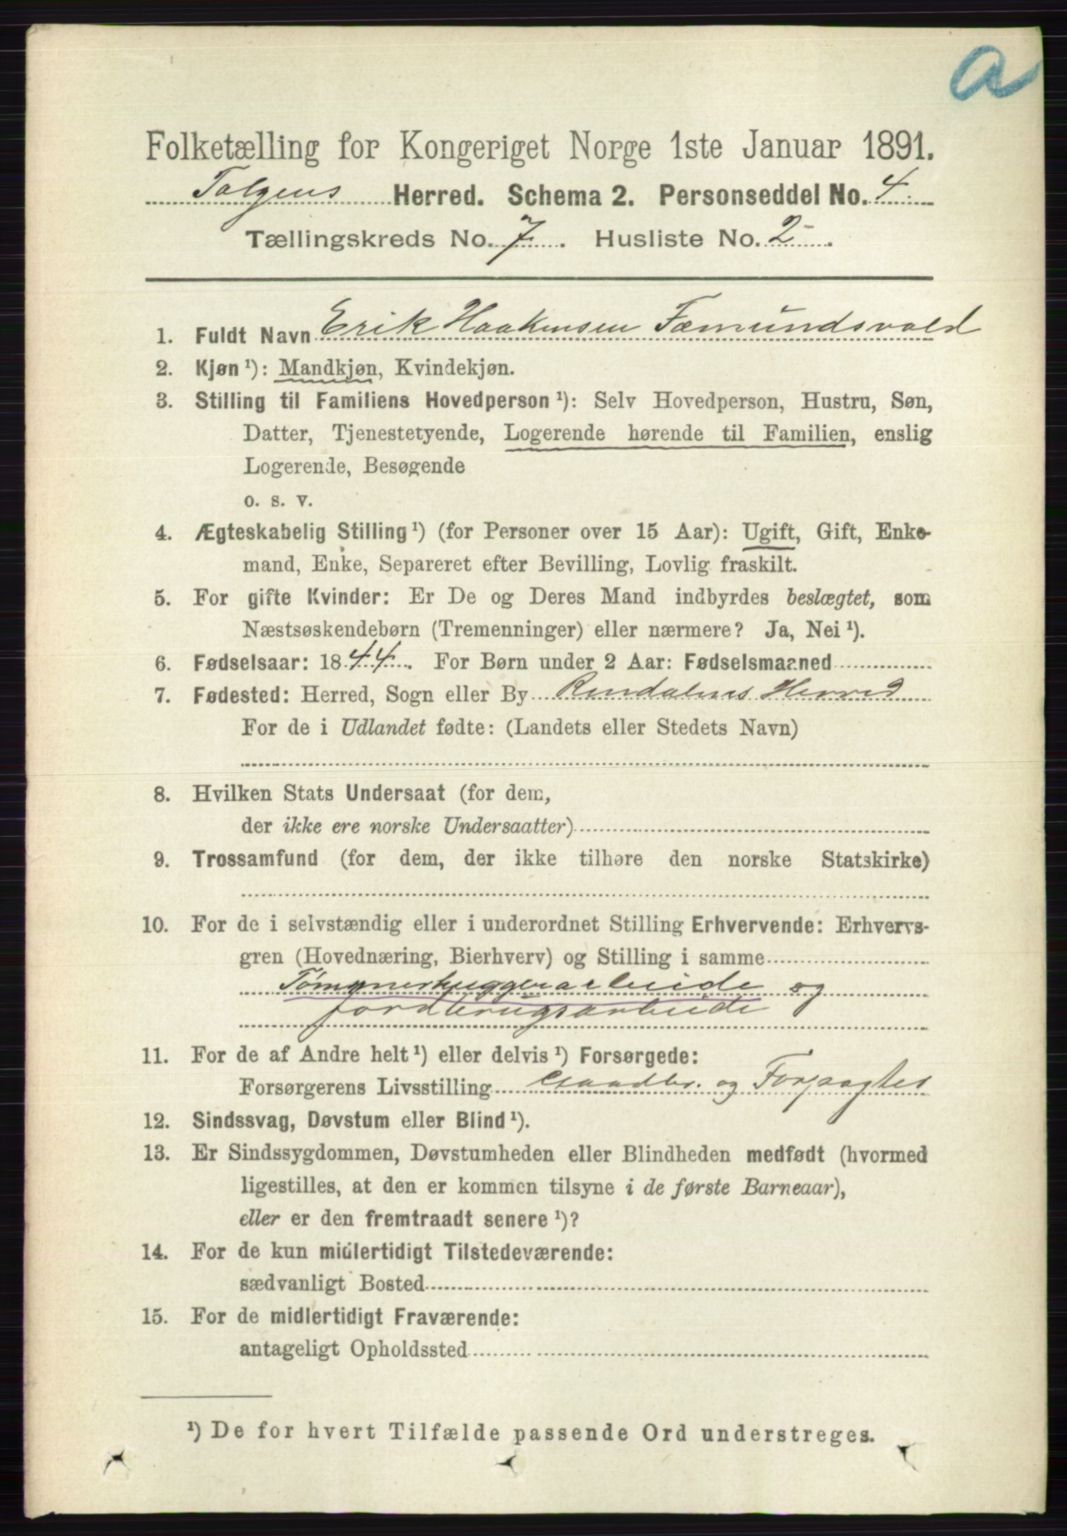 a
Folketælling for Kongeriget Norge 1ste Januar 1891.
Tolgens Herred. Schema 2. Personseddel No. 4.
Tællingskreds No. 7. Husliste No. 2.
1. Fuldt Navn Erik Haakensen Fæmundsvold
2. Kjøn ¹): Mandkjøn, Kvindekjøn.
3. Stilling til Familiens Hovedperson ¹): Selv Hovedperson, Hustru, Søn,
Datter, Tjenestetyende, Logerende hørende til Familien, enslig
Logerende, Besøgende
o. s. v.
4. Ægteskabelig Stilling ¹) (for Personer over 15 Aar): Ugift, Gift, Enke-
mand, Enke, Separeret efter Bevilling, Lovlig fraskilt.
5. For gifte Kvinder: Er De og Deres Mand indbyrdes beslægtet, som
Næstsøskendebørn (Tremenninger) eller nærmere? Ja, Nei ¹).
6. Fødselsaar: 1844. For Børn under 2 Aar: Fødselsmaaned
7. Fødested: Herred, Sogn eller By Rendalens Herred
For de i Udlandet fødte: (Landets eller Stedets Navn)
8. Hvilken Stats Undersaat (for dem,
der ikke ere norske Undersaatter)
9. Trossamfund (for dem, der ikke tilhøre den norske Statskirke)
10. For de i selvstændig eller i underordnet Stilling Erhvervende: Erhvervs-
gren (Hovednæring, Bierhverv) og Stilling i samme
Tømmerhuggerarbeide og
jordbrugsarbeide
11. For de af Andre helt ¹) eller delvis ¹) Forsørgede:
Forsørgerens Livsstilling Gaardbr. og Forpagter
12. Sindssvag, Døvstum eller Blind ¹).
13. Er Sindssygdommen, Døvstumheden eller Blindheden medfødt (hvormed
ligestilles, at den er kommen tilsyne i de første Barneaar),
eller er den fremtraadt senere ¹)?
14. For de kun midlertidigt Tilstedeværende:
sædvanligt Bosted
15. For de midlertidigt Fraværende:
antageligt Opholdssted
¹) De for hvert Tilfælde passende Ord understreges.